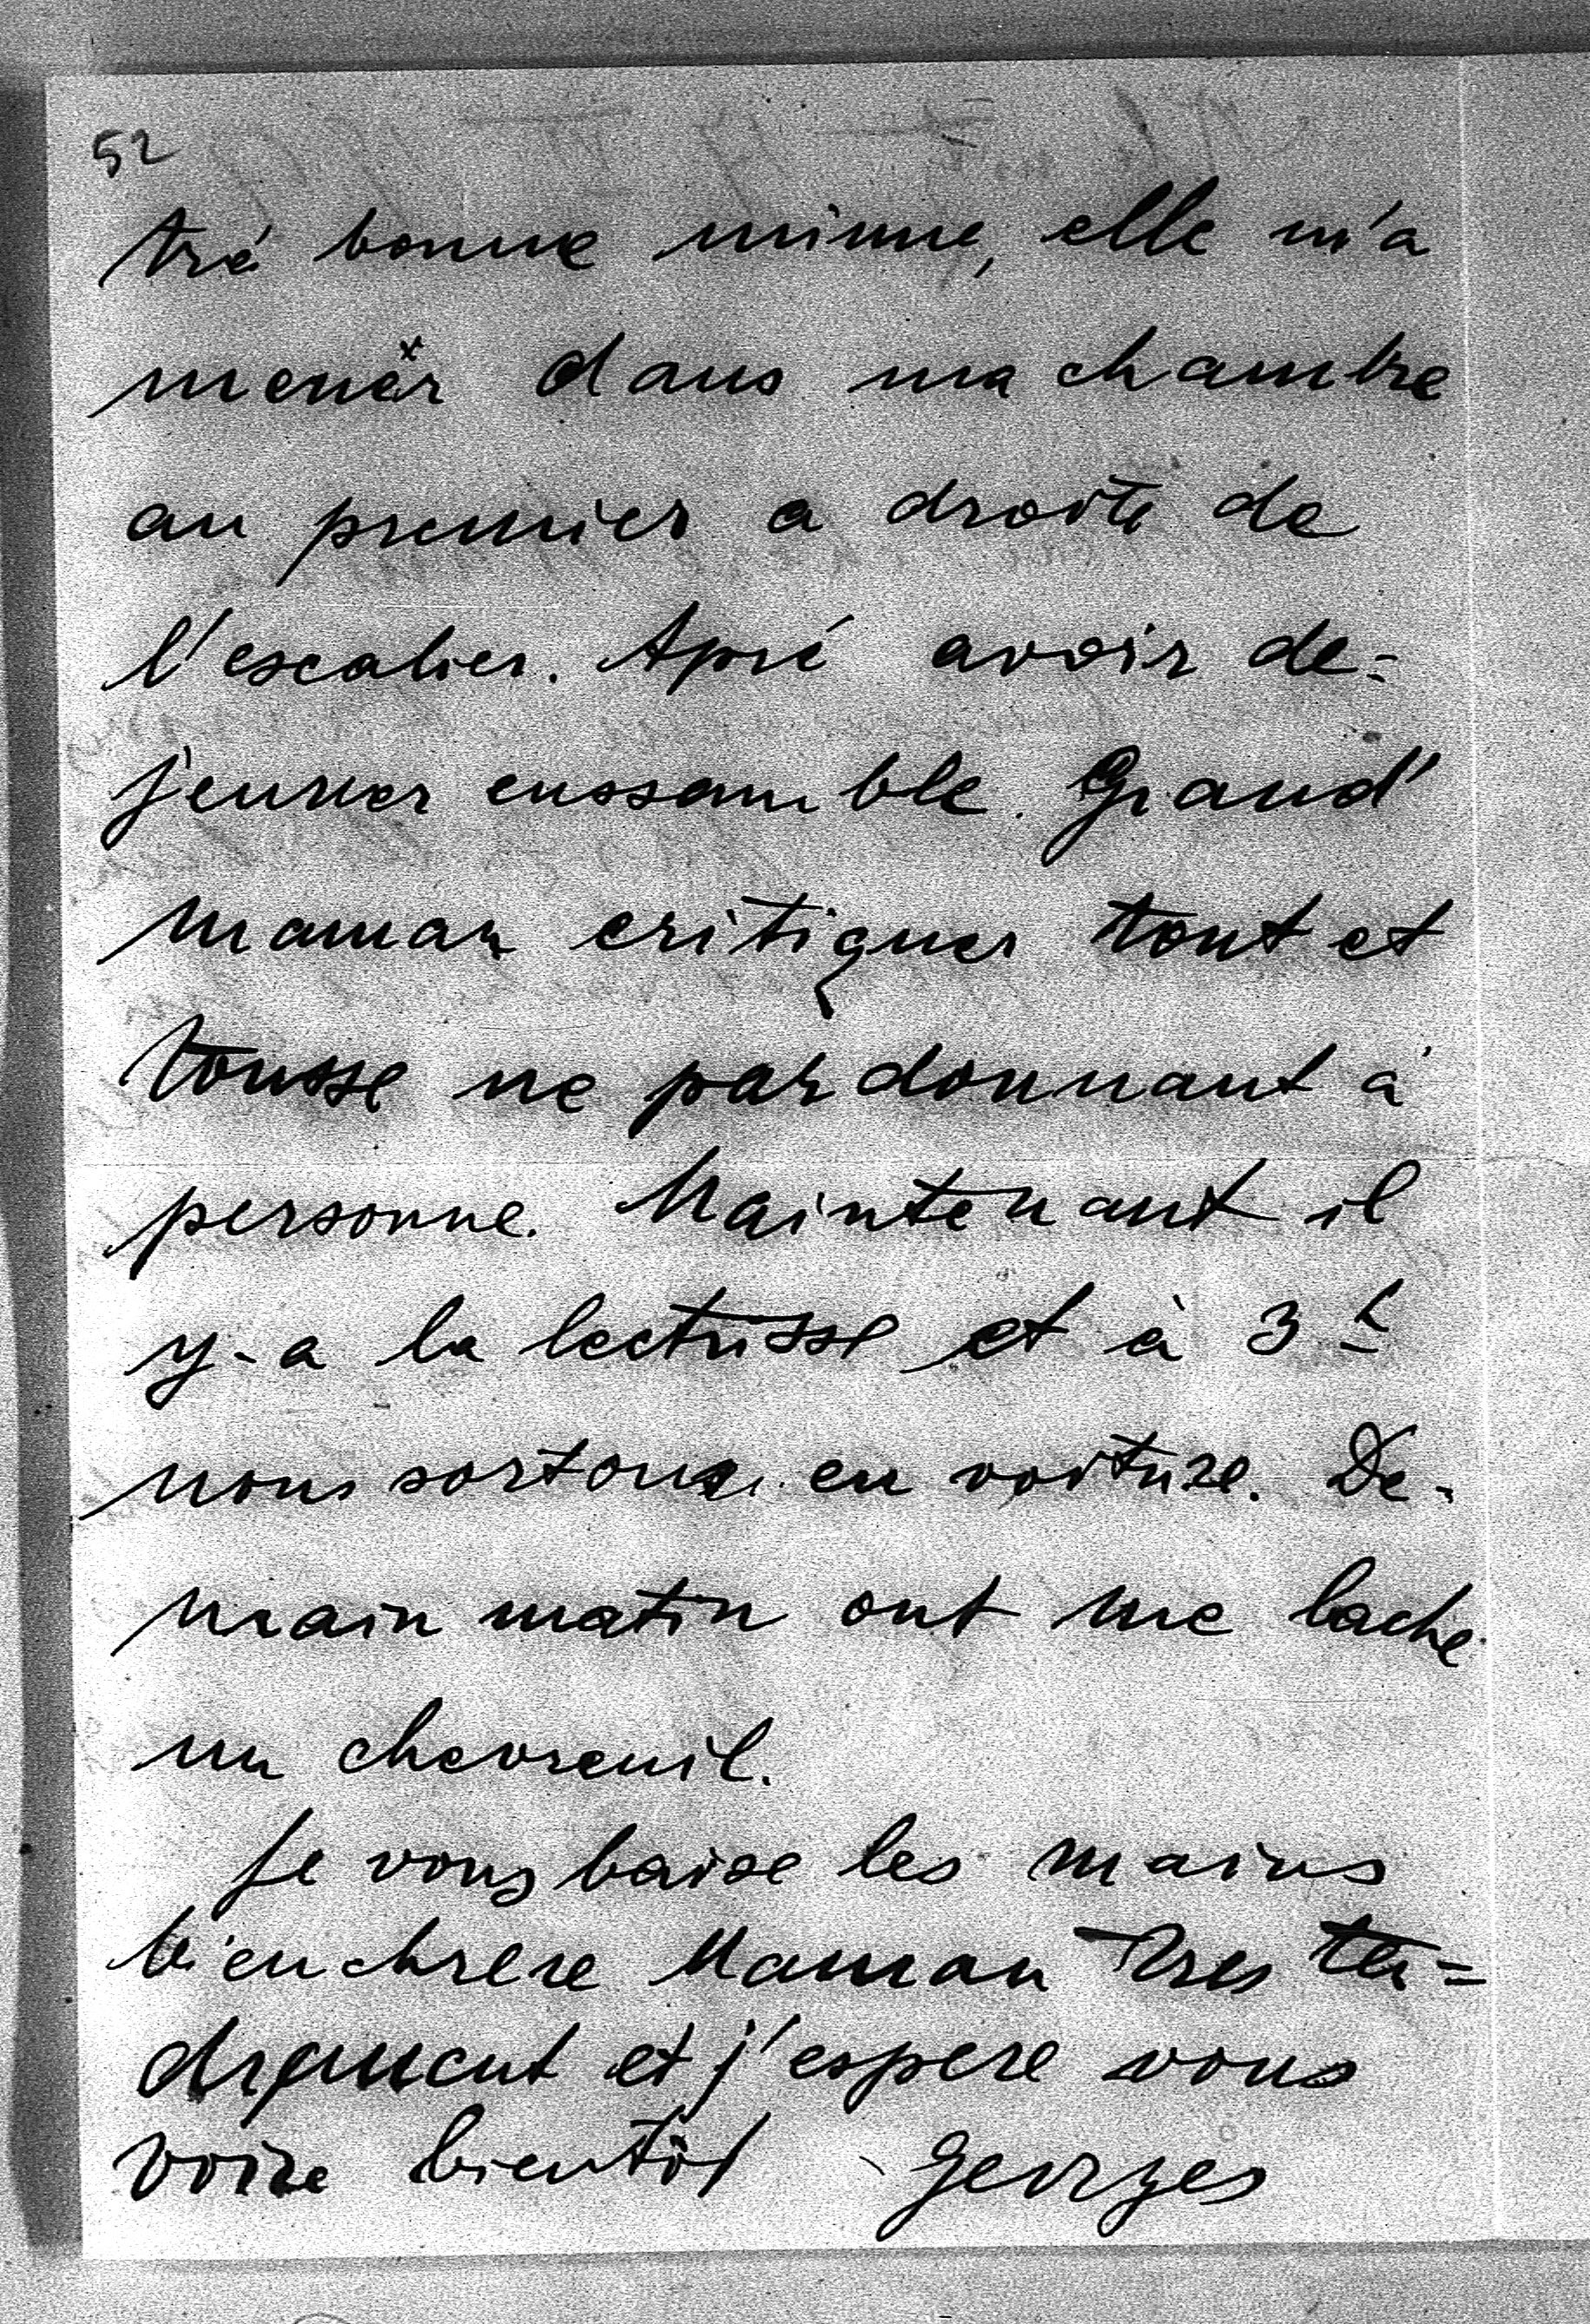 52
tré bonne minne, elle m'a
menér dans ma chambre
au premier a droite de
l'escalier. Apré avoir de-
jeuner enssamble. Grand'
maman critiquer tout et
tousse ne pardonnant à
personne. Maintenant il
y-a la lectrisse et à 3 h
nous sortons en voiture. De-
main matin ont me lache
un chevreuil.
Je vous baise les mains
bien chrere Maman Tres ten-
drement et j'espere vous
voire bientôt Georges